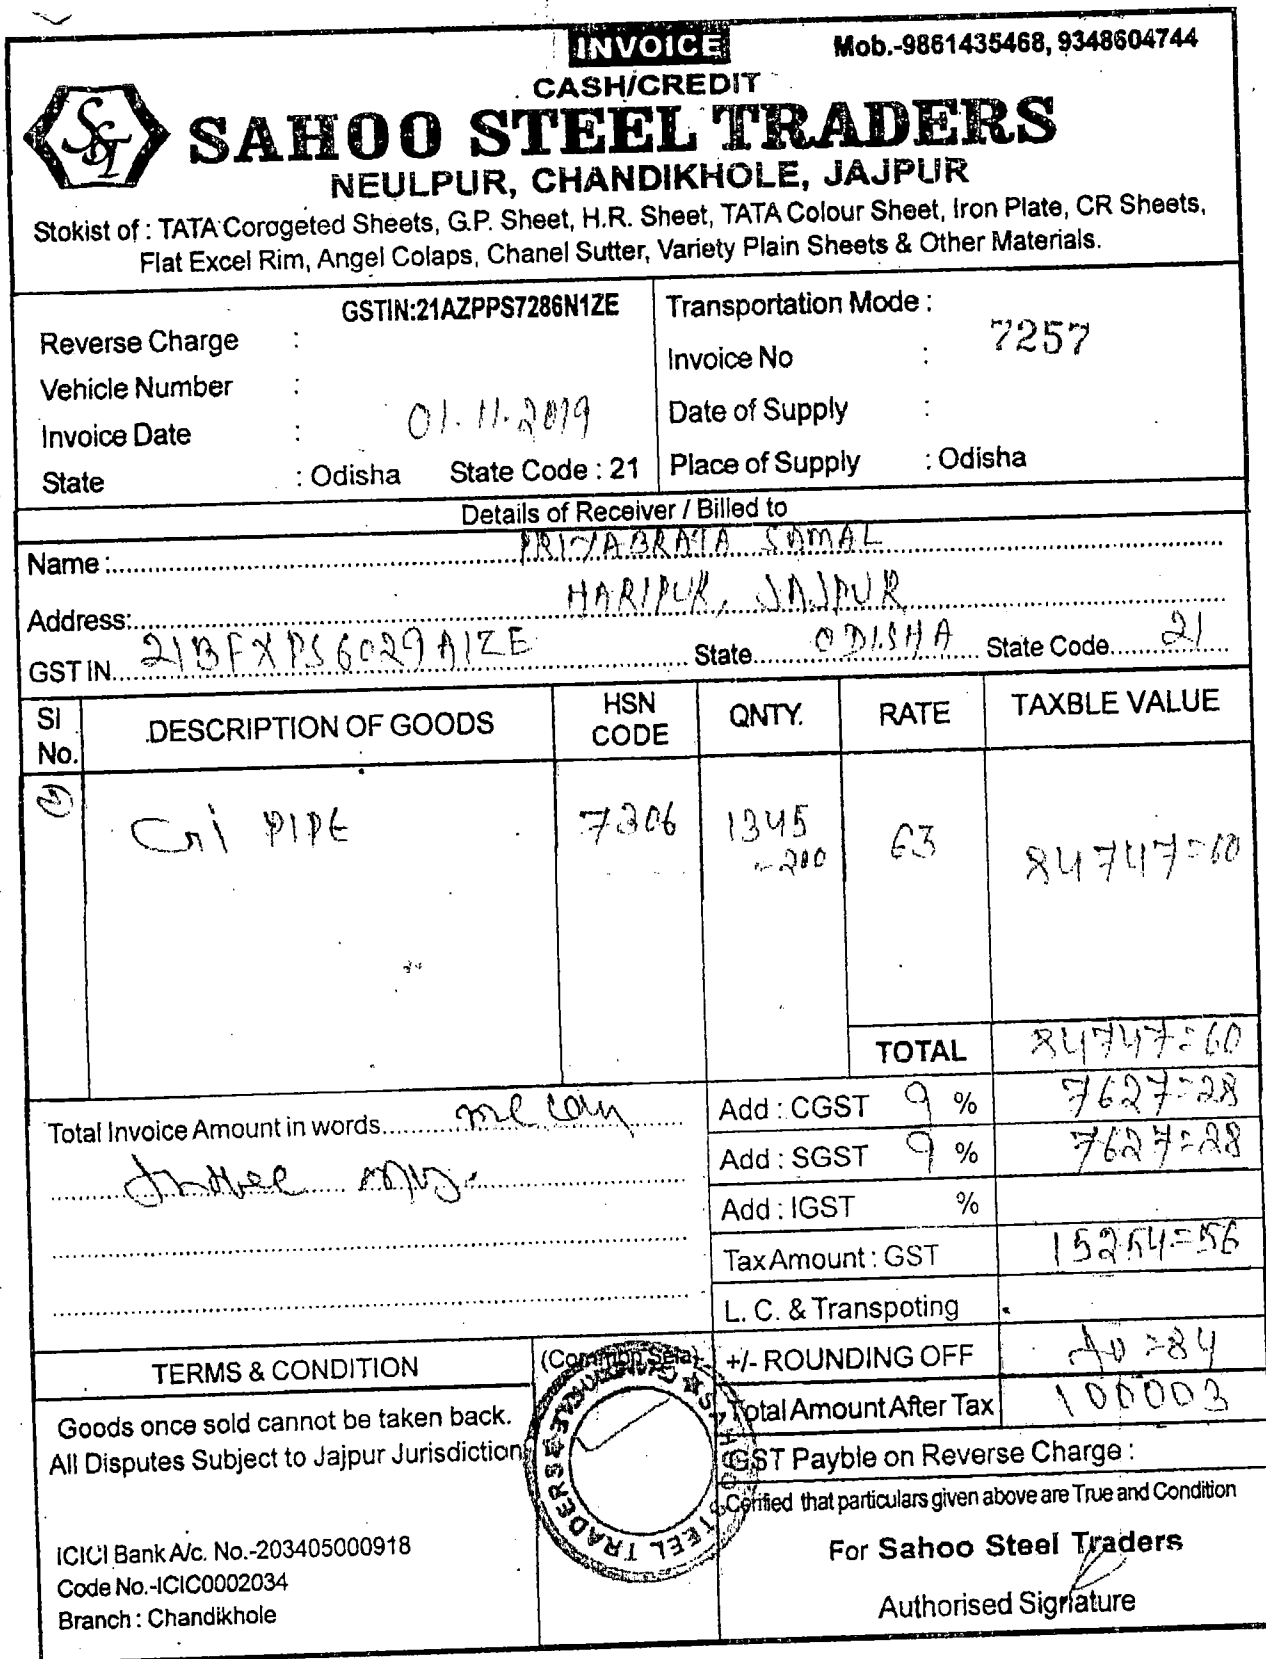 INVOICE
Mob.-9861435468, 9348604744
CASH/CREDIT
SAHOO STEEL TRADERS
NEULPUR, CHANDIKHOLE, JAJPUR
Stokist of : TATA Corogeted Sheets, G.P. Sheet, H.R. Sheet, TATA Colour Sheet, Iron Plate, CR Sheets,
Flat Excel Rim, Angel Colaps, Chanel Sutter, Variety Plain Sheets & Other Materials.
GSTIN:21AZPPS7286N1ZE
Reverse Charge :
Vehicle Number :
Invoice Date : 01.11.2019
State : Odisha State Code : 21
Transportation Mode :
Invoice No : 7257
Date of Supply :
Place of Supply : Odisha
Details of Receiver / Billed to
Name : PRIYABRATA SAMAL
Address: HARIPUR, JAJPUR
GSTIN 21BFXPS6029A1ZE State ODISHA State Code 21
SI No. DESCRIPTION OF GOODS HSN CODE QNTY. RATE TAXBLE VALUE
GI PIPE 7306 1345 -200 63 84747=60
TOTAL 84747=60
Total Invoice Amount in words
Add : CGST 9 % 7627=28
Add : SGST 9 % 7627=28
Add : IGST %
Tax Amount : GST 15254=56
L. C. & Transpoting
+/- ROUNDING OFF =84
Total Amount After Tax 100003
GST Payble on Reverse Charge :
TERMS & CONDITION
Goods once sold cannot be taken back.
All Disputes Subject to Jajpur Jurisdiction
ICICI Bank A/c. No.-203405000918
Code No.-ICIC0002034
Branch : Chandikhole
(Common Seal)
SAHOO STEEL TRADERS
Cerified that particulars given above are True and Condition
For Sahoo Steel Traders
Authorised Signature